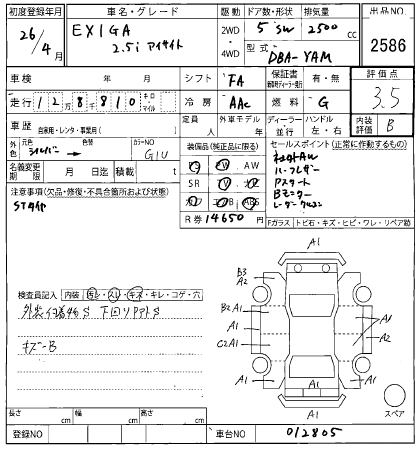 初度登録年月 車名・グレード 駆動 ドア数・形状 排気量 出品NO
26/4月 EXIGA 2.5i アイサイト 2WD 4WD 5 SW 2500 cc 2586
型式 DBA-YAM
車検 年 月 シフト FA 保証書 有・無 評価点
走行 128810 キロ・マイル 冷房 AAC 燃料 G 3.5
車歴 自家用・レンタ・事業用( ) 定員 人 外車モデル 年 ディーラー 並行 ハンドル 左・右 内装評価 B
外色 元色 シルバー 色替 カラーNO G1U
装備品(純正品に限る) セールスポイント(正常に作動するもの)
名義変更期限 月 日迄 積載 t
AW
社外AW
SR
ルーフレザー
注意事項(欠品・修復・不具合箇所および状態)
Pスタート
ABS
Bモニター
STスレ
レーダークルコン
R券 14650 円
Fガラス トビ石・キズ・ヒビ・ワレ・リペア跡
A1
A1
B3
A2
検査員記入 内装 汚レ・スレ・キズ・キレ・コゲ・穴
B2 A1
A1
A1
A1
A2
C2 A1
キズーB
A1
A1
A1
A1
スペア
長さ cm 幅 cm 高さ cm
登録NO 車台NO 012805